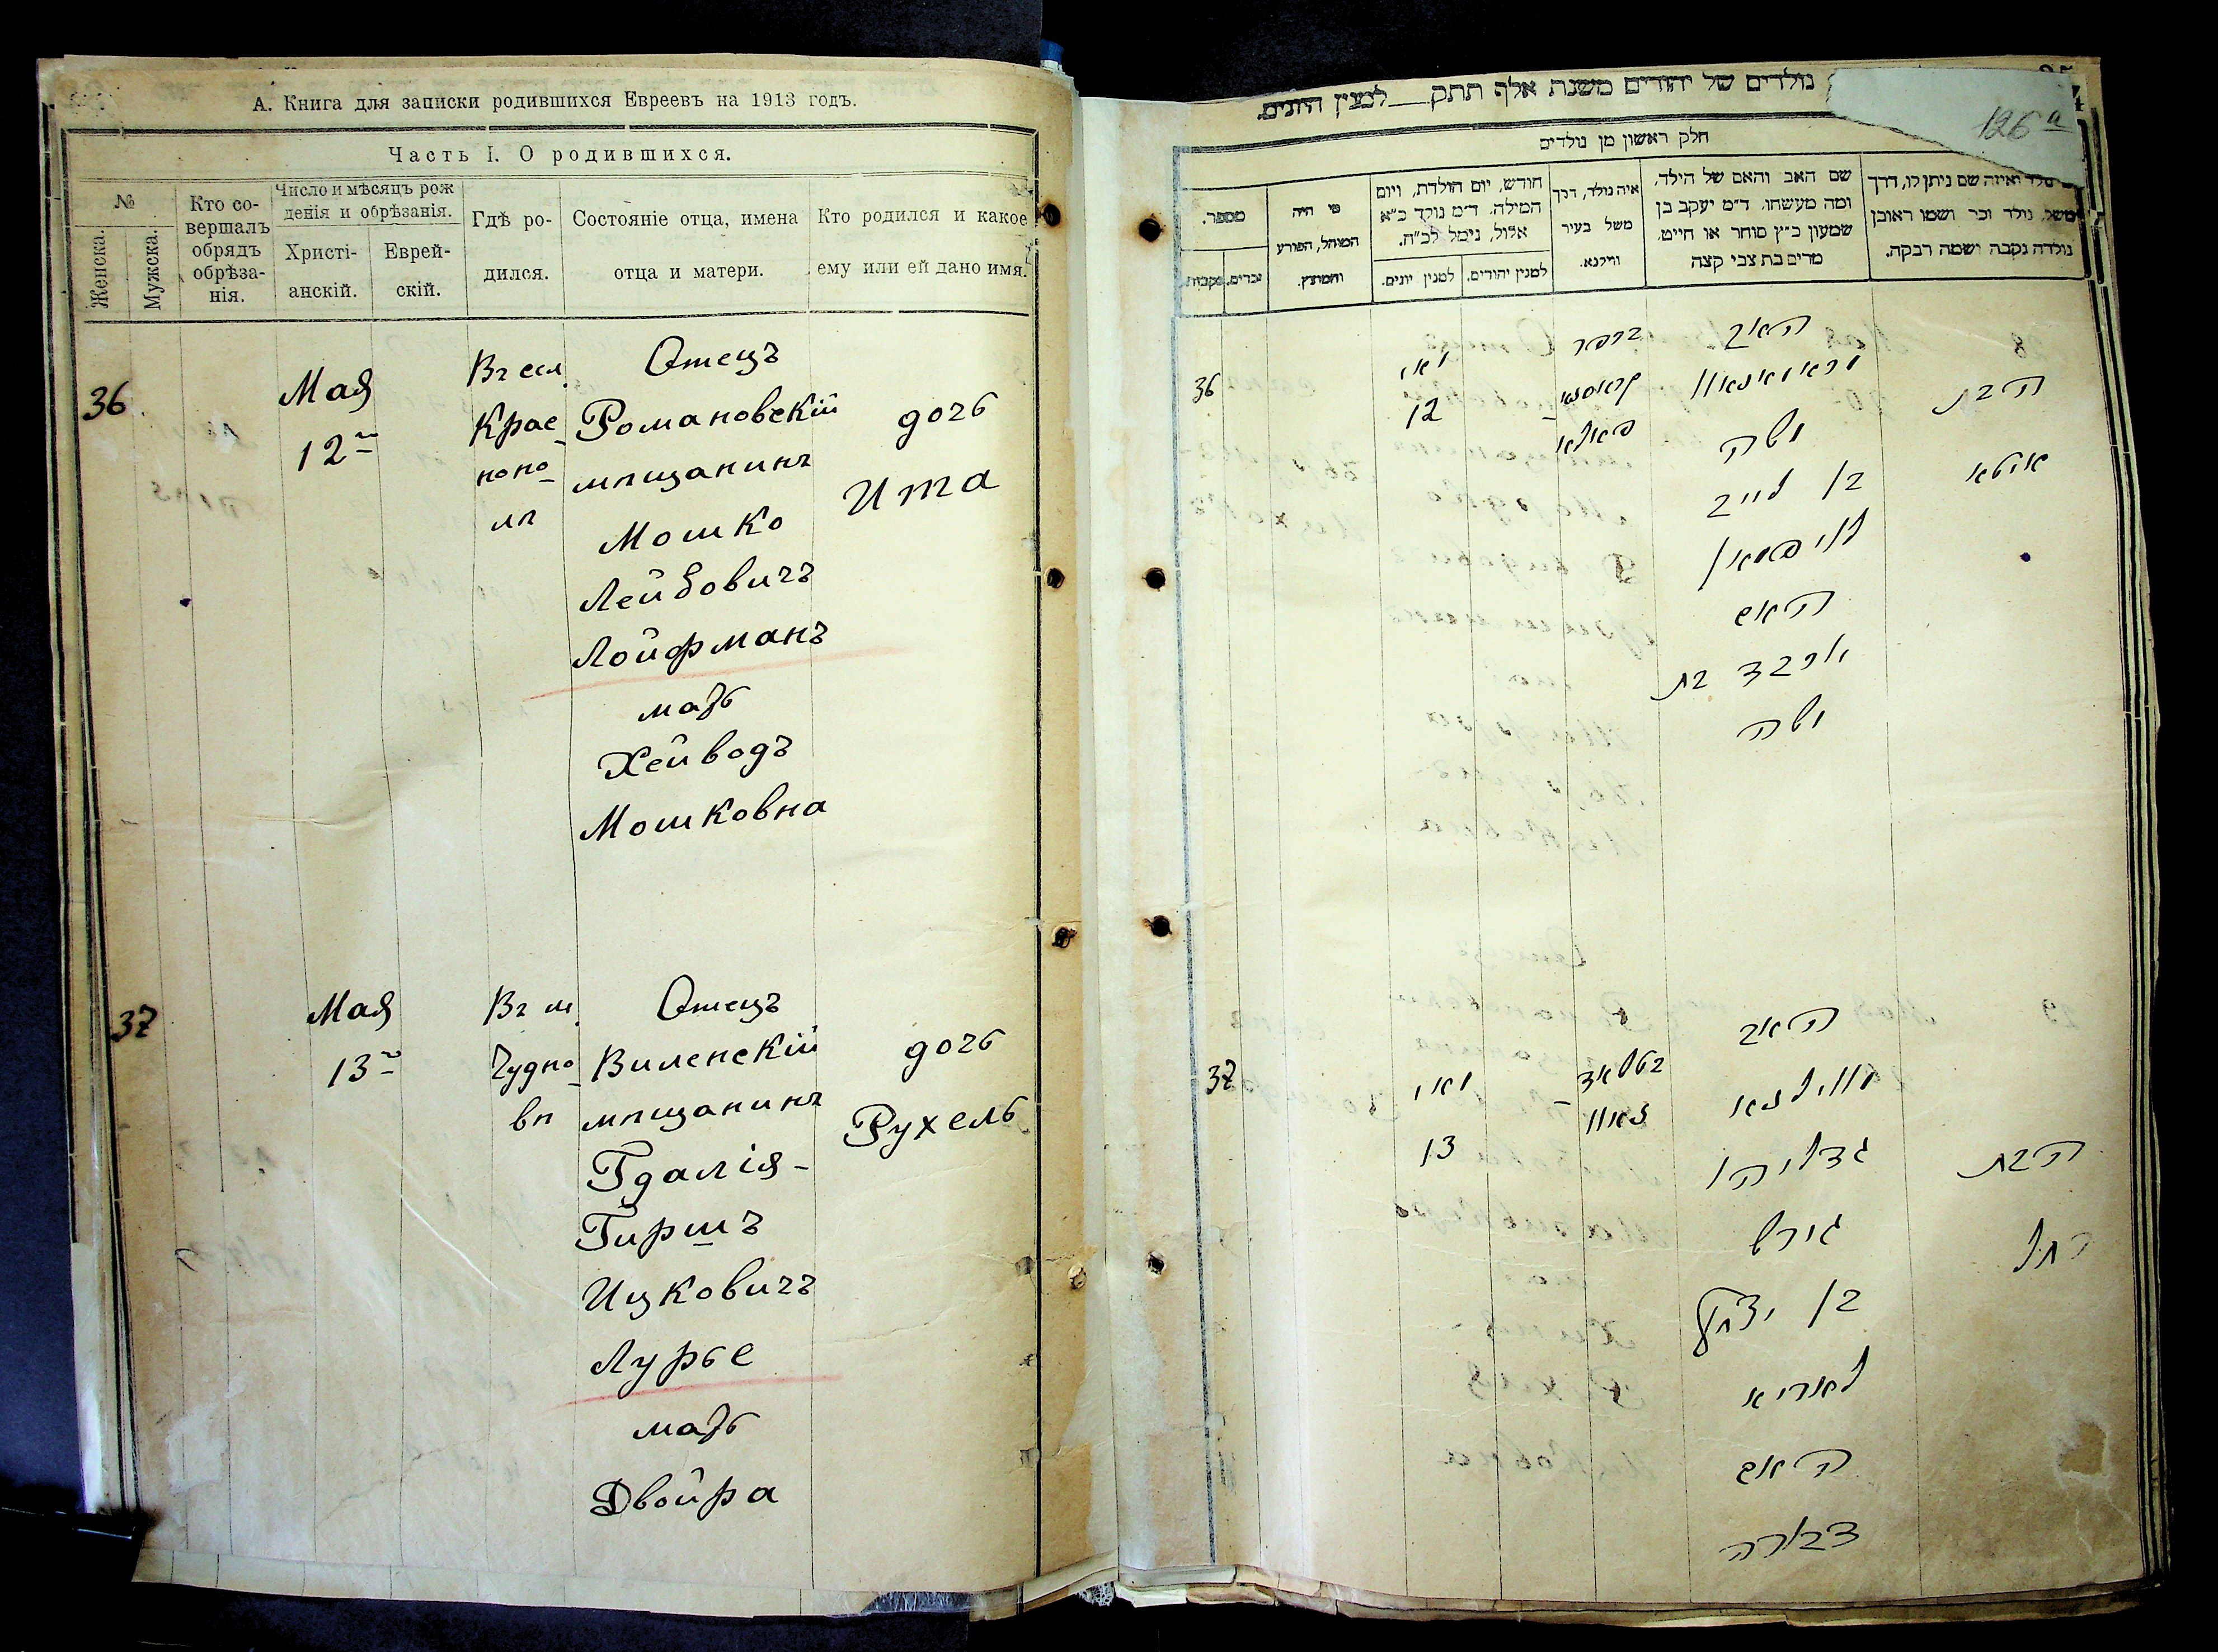 А. Книга для записки родившихся Евреевъ на 1913 годъ.
Часть I. О родившихся.
№
Женска.
Мужска.
Кто со-
вершалъ
обрядъ
обрѣза-
нія.
Число и мѣсяцъ рож
денія и обрѣзанія.
Христі-
анскій.
Еврей-
скій.
Гдѣ ро-
дился.
Состояніе отца, имена
отца и матери.
Кто родился и какое
ему или ей дано имя.
36
Мая
12
Въ сел.
Крас
нопо
лѣ
Отецъ
Романовскій
мѣщанинъ
Мошко
Лейбовичъ
Лойфманъ
мать
Хейводъ
Мошковна
дочь
Ита
37
Мая
13
Въ м.
Чудно
вѣ
Отецъ
Виленскій
мѣщанинъ
Гдалія-
Гиршъ
Ицковичъ
Лурье
мать
Двойра
дочь
Рухель
נולדים של יהודים משנת אלף תתק למנין היונים.
126 а
חלק ראשון מן נולדים
מספר.
זכרים.
נקבות.
מי היה
המוהל, הפורע
והמוצץ.
חודש, יום הולדת, ויום
המילה. ד״מ נולד כ״א
אלול, נימל לכ״ח.
למנין יונים.
למנין יהודים.
איה נולד, דרך
משל בעיר
ווילנא.
שם האב והאם של הילד,
ומה מעשהו. ד״מ יעקב בן
שמעון כ״ץ סוחר או חייט.
מרים בת צבי קצה
נולד ואיזה שם ניתן לו, דרך
משל, נולד זכר ושמו ראובן
נולדה נקבה ושמה רבקה.
36
מאי
12
בכפר
קראסנא
פאלא
האב
ראמאנאוו
משה
בן לייב
לויפמאן
האם
יוכבד בת
משה
הבת
איטא
37
מאי
13
נאוו
האב
ווילנא
גדליהו
גירש
בן יצחק
לאריא
האם
דבורה
הבת
רחל